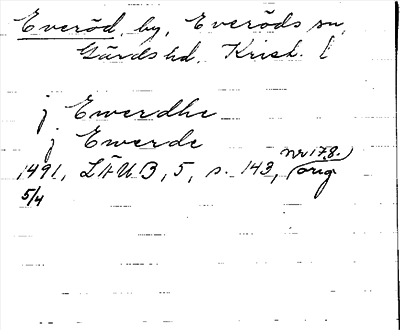 Everöd, by, Everöds sn,
Gärds hd, Krist. l
j Ewerdhe
j Ewerde
nr 178.)
1491, LÄUB, 5, s. 143, (orig
5/4